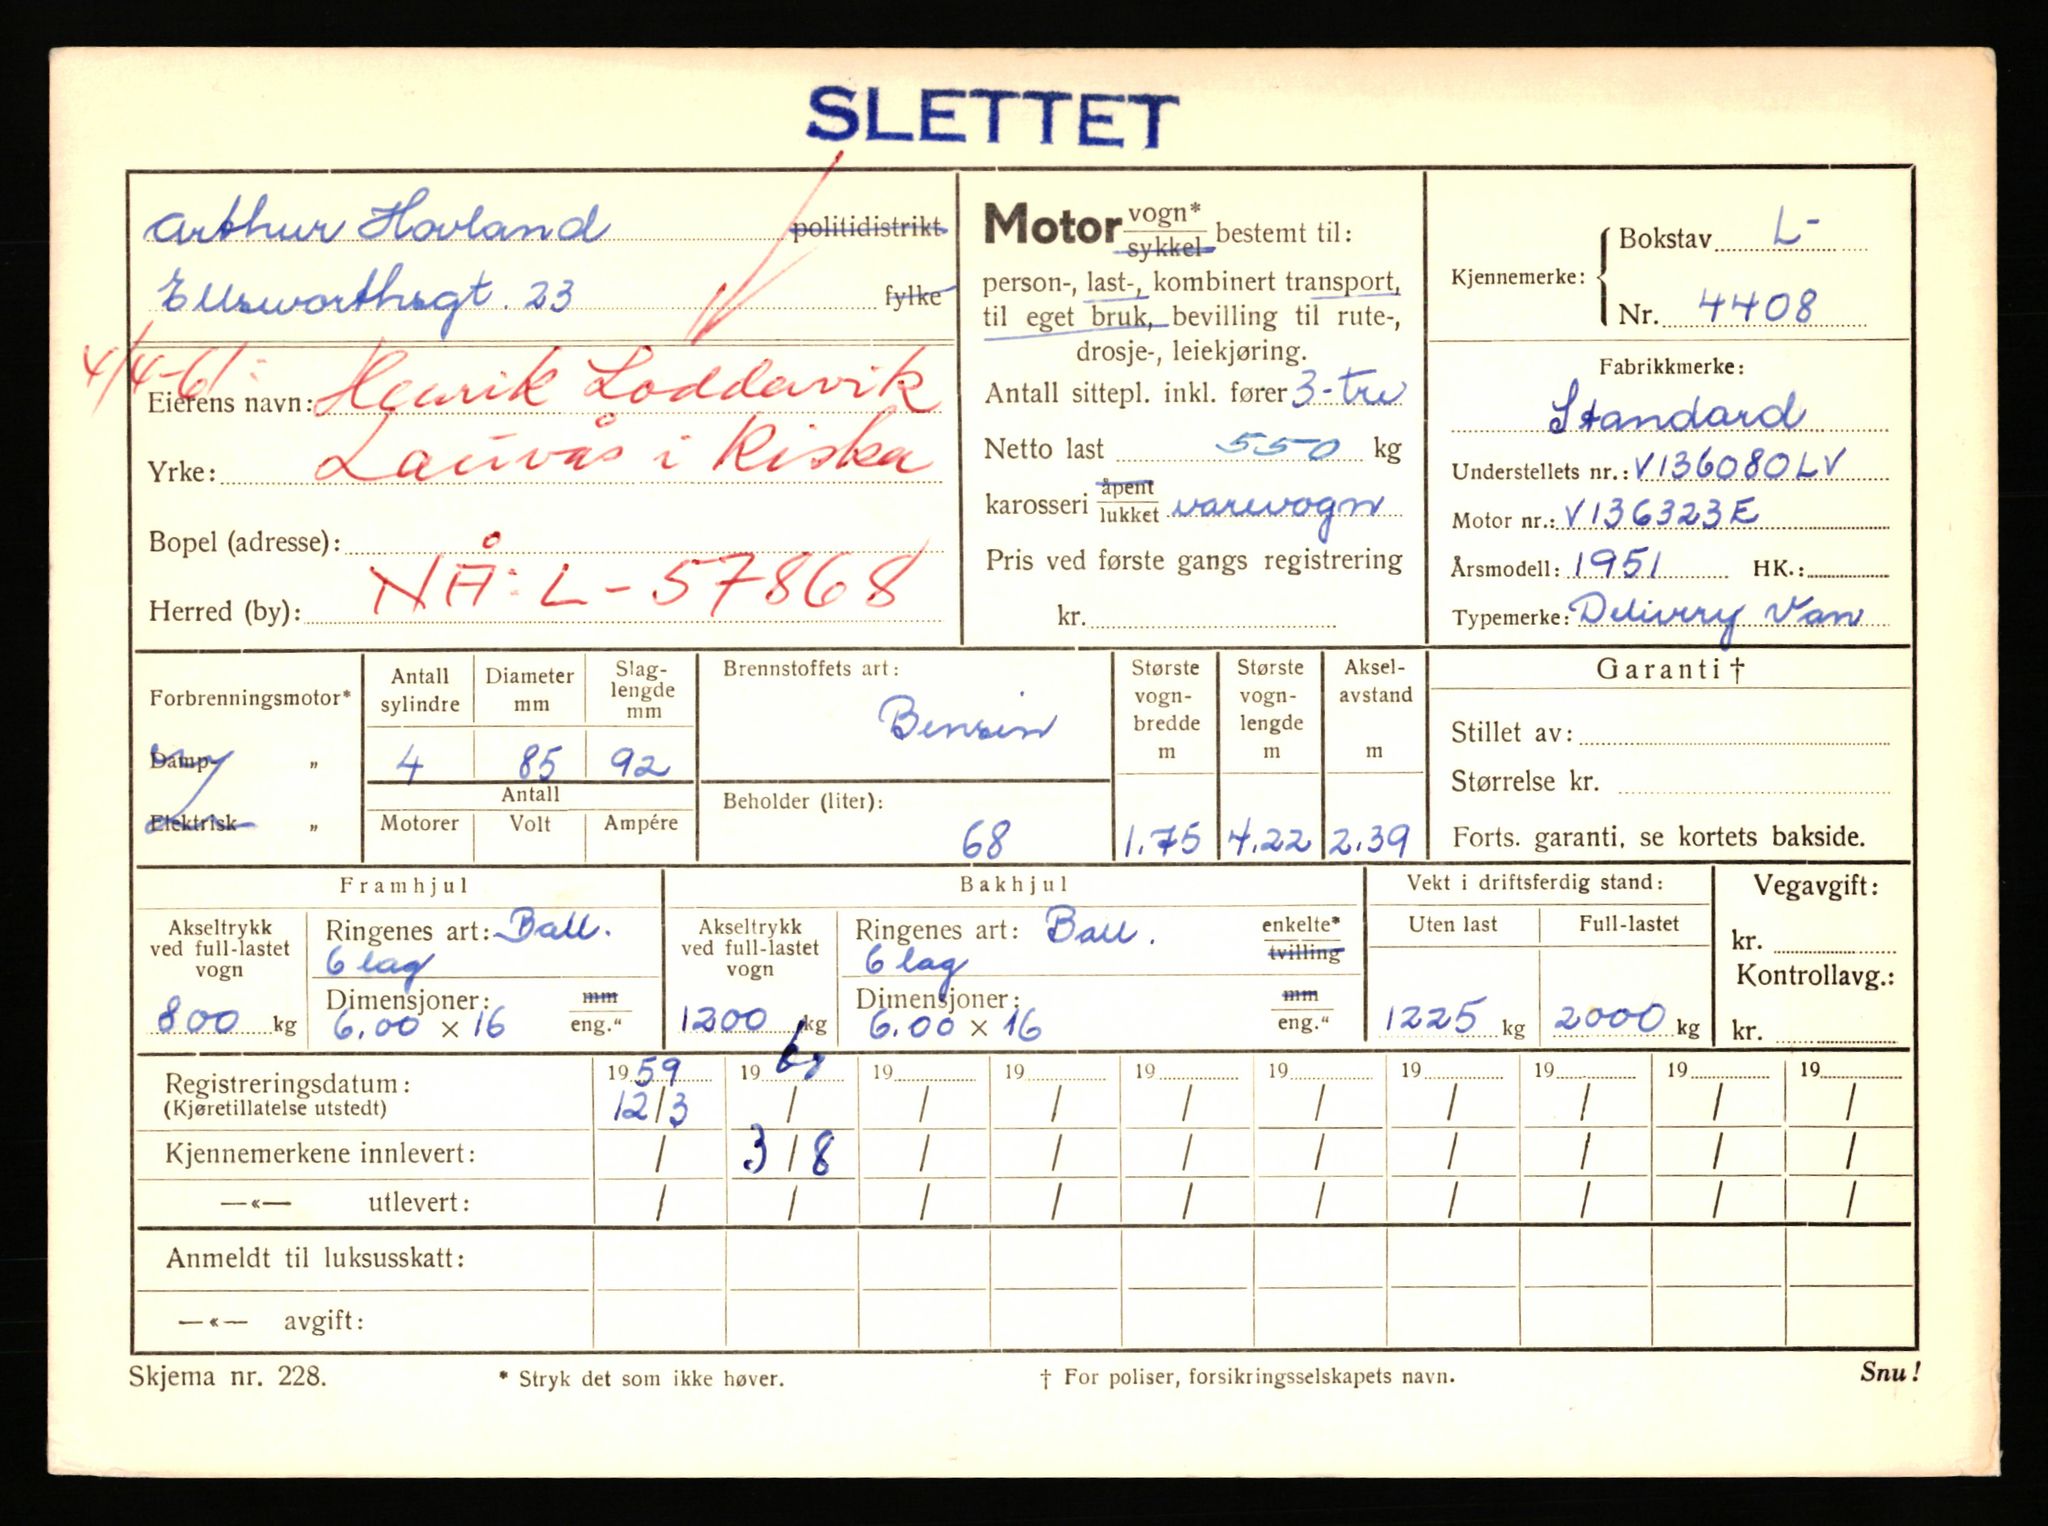 SLETTET
Arthur Hovland politidistrikt
Ellsworthsgt. 23 fylke
4/4-61:
Eierens navn: Henrik Loddervik
Yrke: Lauvås i Riska
Bopel (adresse):
Herred (by): NÅ: L-57868
Motor vogn* sykkel bestemt til:
person-, last-, kombinert transport,
til eget bruk, bevilling til rute-,
drosje-, leiekjøring.
Antall sittepl. inkl. fører 3-tre
Netto last 550 kg
karosseri åpent lukket varevogn
Pris ved første gangs registrering
kr.
Kjennemerke: Bokstav L-
Nr. 4408
Fabrikkmerke:
Standard
Understellets nr.: V136080LV
Motor nr.: V136323E
Årsmodell: 1951 HK.:
Typemerke: Delivry Van
Forbrenningsmotor*
Damp- „
Elektrisk „
Antall sylindre
4
Diameter mm
85
Slag-lengde mm
92
Antall
Motorer Volt Ampére
Brennstoffets art:
Bensin
Beholder (liter):
68
Største vogn-bredde m
1.75
Største vogn-lengde m
4.22
Aksel-avstand m
2.39
Garanti †
Stillet av:
Størrelse kr.
Forts. garanti, se kortets bakside.
Framhjul
Akseltrykk ved full-lastet vogn
800 kg
Ringenes art: Ball.
6 lag
Dimensjoner: mm
6.00 × 16 eng."
Bakhjul
Akseltrykk ved full-lastet vogn
1200 kg
Ringenes art: Ball. enkelte* tvilling
6 lag
Dimensjoner: mm
6.00 × 16 eng."
Vekt i driftsferdig stand:
Uten last Full-lastet
1225 kg 2000 kg
Vegavgift:
kr.
Kontrollavg.:
kr.
Registreringsdatum: 1959 19 19 19 19 19 19 19 19 19
(Kjøretillatelse utstedt) 12/3 / / / / / / / / /
Kjennemerkene innlevert: / 3/8 / / / / / / / /
—«— utlevert: / / / / / / / / / /
Anmeldt til luksusskatt:
—«— avgift:
Skjema nr. 228. * Stryk det som ikke høver. † For poliser, forsikringsselskapets navn. Snu!